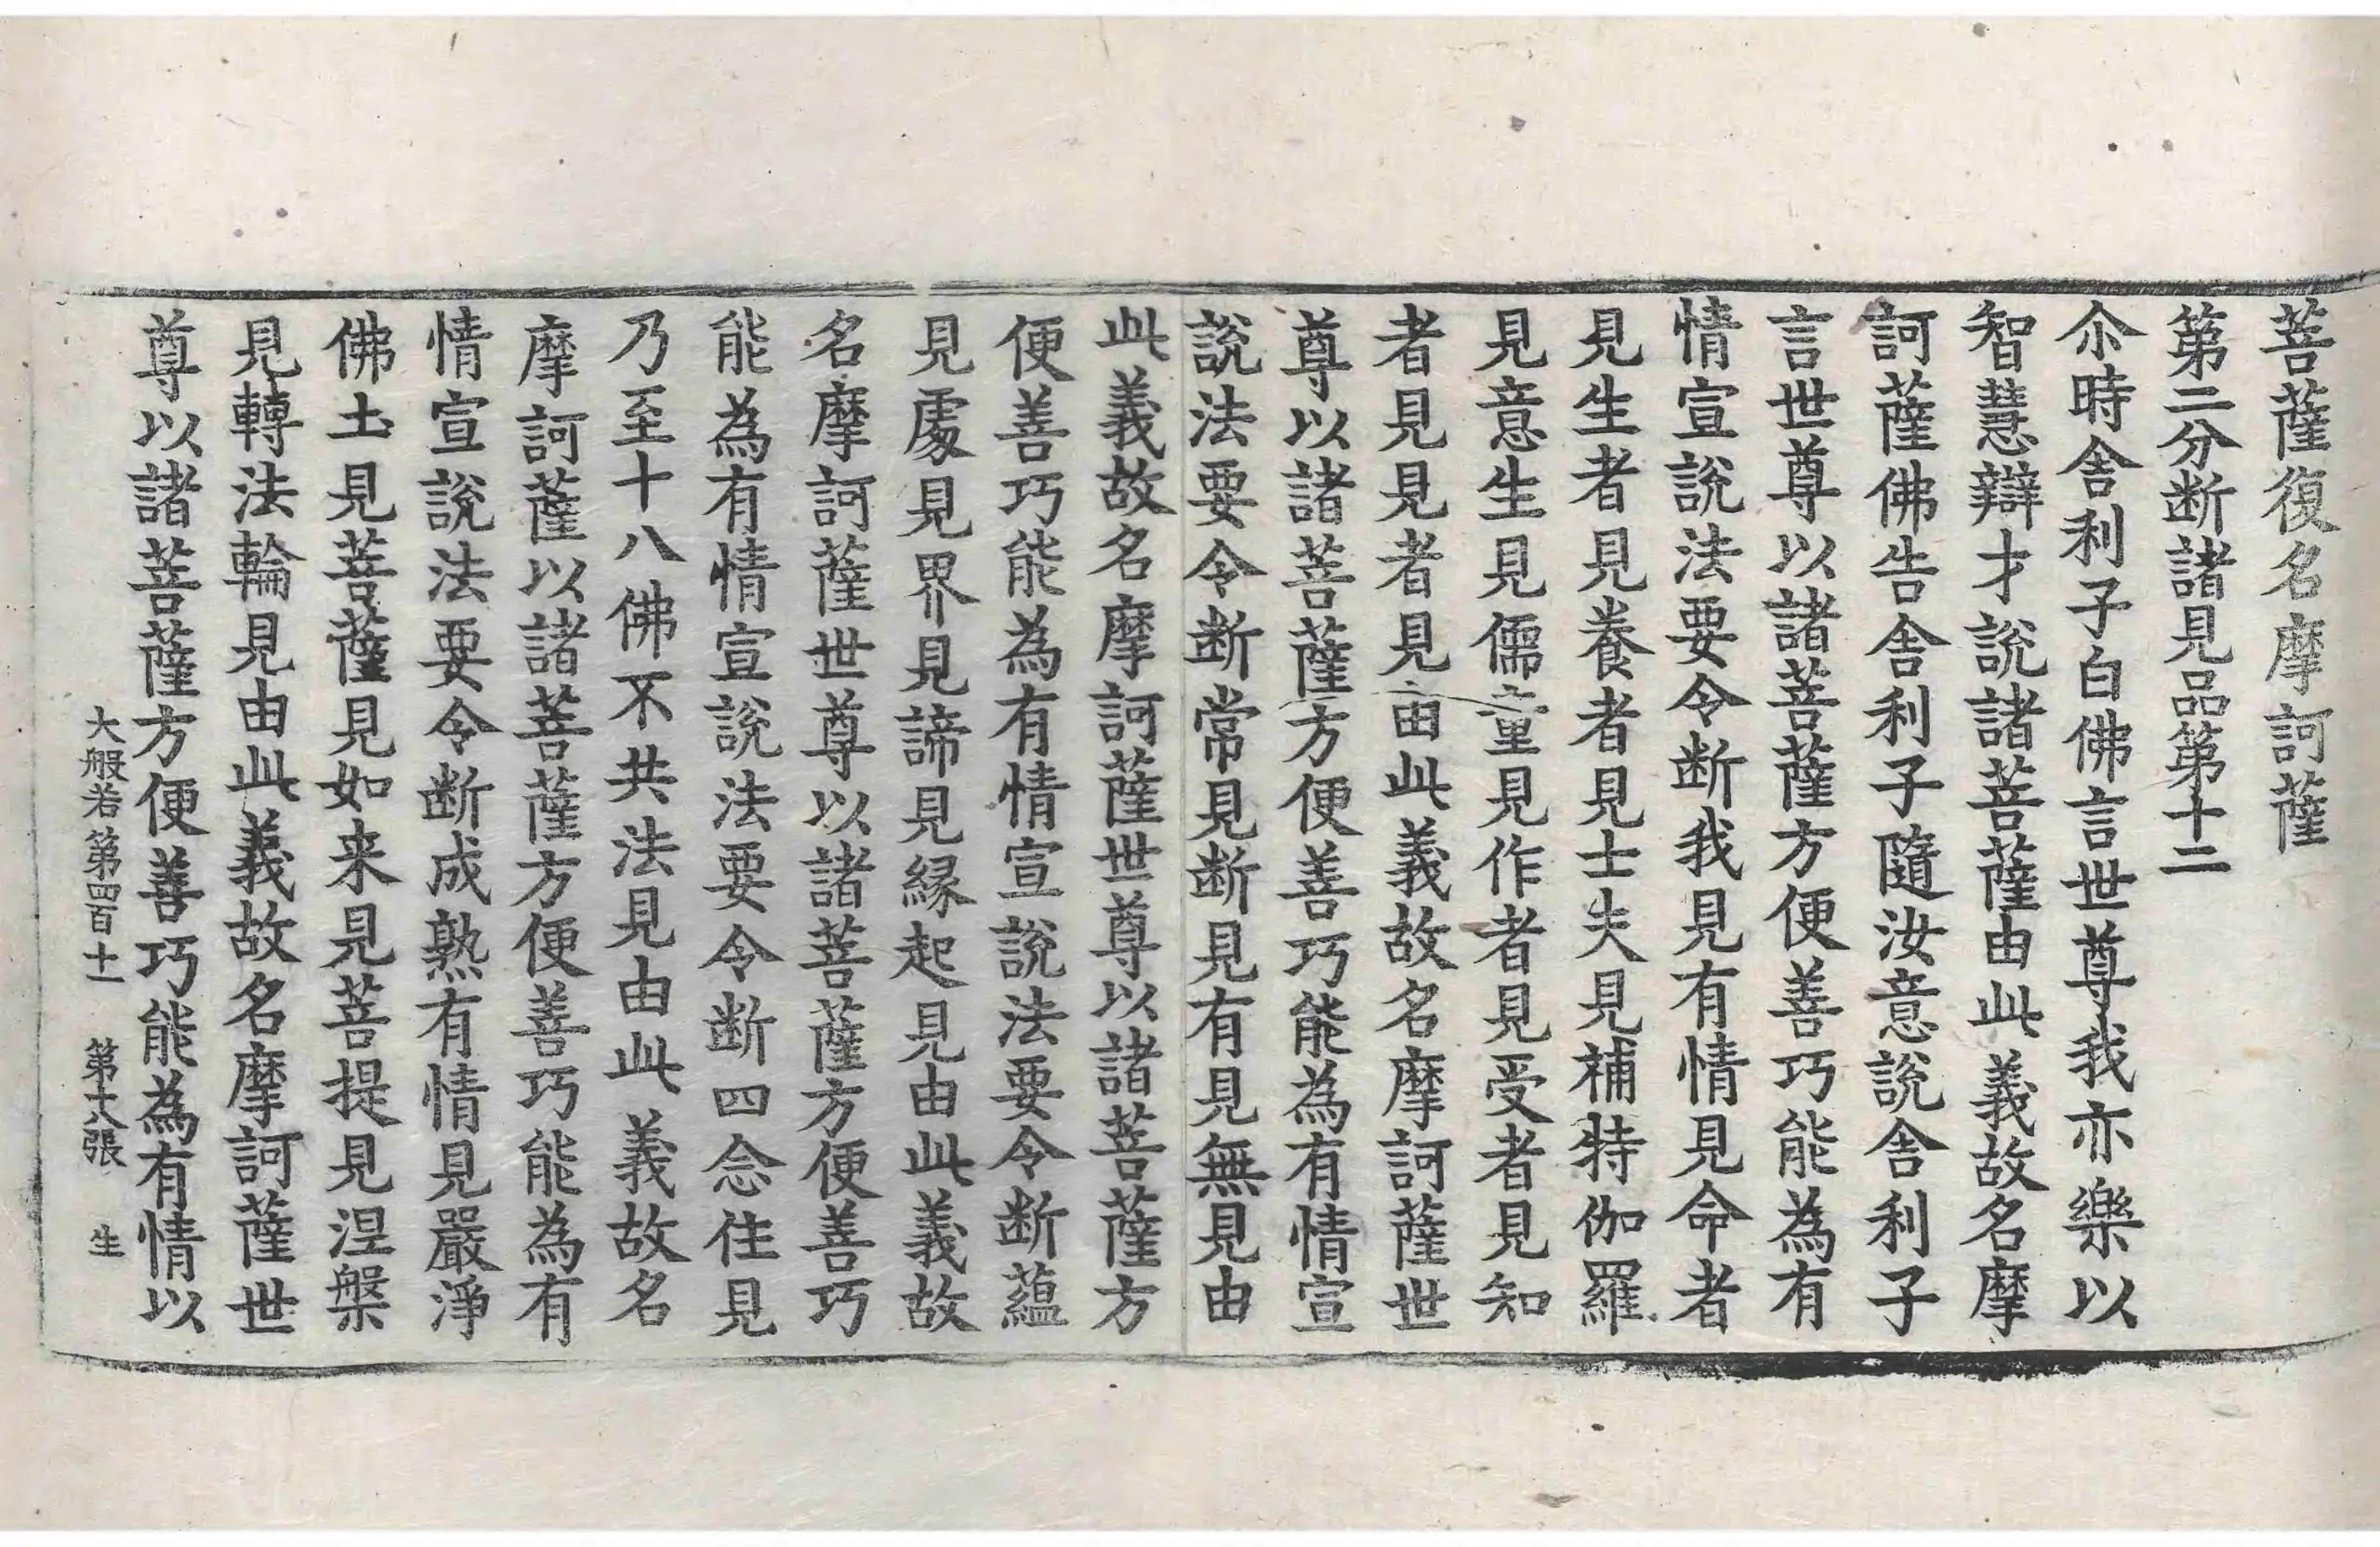 菩薩復名摩訶薩
第二分断諸見品第十二
尒時舎利子白佛言世尊我亦樂以
智慧辯才說諸菩薩由此義故名摩
訶薩佛告舎利子隨汝意說舎利子
言世尊以諸菩薩方便善巧能為有
情宣說法要令断我見有情見命者
見生者見養者見士夫見補特伽羅
見意生見儒童見作者見受者見知
者見見者見由此義故名摩訶薩世
尊以諸菩薩方便善巧能為有情宣
說法要令断常見断見有見無見由
此義故名摩訶薩世尊以諸菩薩方
便善巧能為有情宣說法要令断蘊
見處見界見諦見緣起見由此義故
名摩訶薩世尊以諸菩薩方便善巧
能為有情宣說法要令断四念住見
乃至十八佛不共法見由此義故名
摩訶薩以諸菩薩方便善巧能為有
情宣說法要令断成熟有情見嚴淨
佛土見菩薩見如来見菩提見涅槃
見轉法輪見由此義故名摩訶薩世
尊以諸菩薩方便善巧能為有情以
大般若第四百十一 第十八張 生